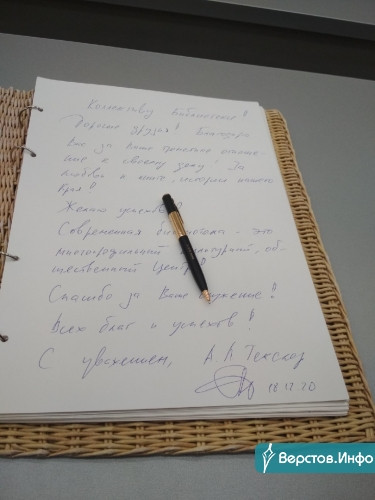 Коллективу Библиотеки!
Дорогие друзья! Благодарю
Вас за Ваше
к своему делу! За
любовь к книге, истории нашего
края!
Желаю успехов!
Современная библиотека - это
культурный, об-
щественный центр!
Спасибо за Ваше служение!
Всех благ и успехов!
С уважением, А.Л. Текслер
18.12.20
Верстов.Инфо